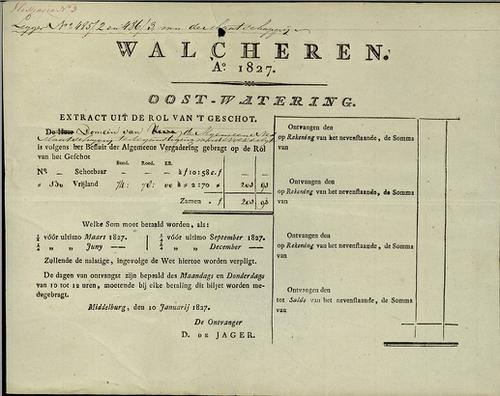 Legger No. 485/2 en 486/3 mn der
WALCHEREN.
Ao. 1827.
OOST-WATERING.
EXTRACT UIT DE ROL VAN 'T GESCHOT.
De Heer Domein van de Algemeene
is volgens het Besluit der Algemeene Vergadering gebragt op de Rol
van het Geschot
Bund. Roed. Ell.
No. — Schotbaar — à f 10:58 c. f
Vrijland 74: 70: à 2 70 f
Zamen . f
Welke Som moet betaald worden, als:
¼ vóór ultimo Maart 1827. ¼ vóór ultimo September 1827.
¼ „ „ Juny — ¼ „ „ December —
Zullende de nalatige, ingevolge de Wet hiertoe worden verpligt.
De dagen van ontvangst zijn bepaald des Maandags en Donderdags
van 10 tot 12 uren, moetende bij elke betaling dit biljet worden me-
degebragt.
Middelburg, den 10 Januarij 1827.
De Ontvanger
D. DE JAGER.
Ontvangen den
op Rekening van het nevenstaande, de Somma
van
Ontvangen den
op Rekening van het nevenstaande, de Somma
van
Ontvangen den
op Rekening van het nevenstaande, de Somma
van
Ontvangen den
tot Saldo van het nevenstaande, de Somma
van